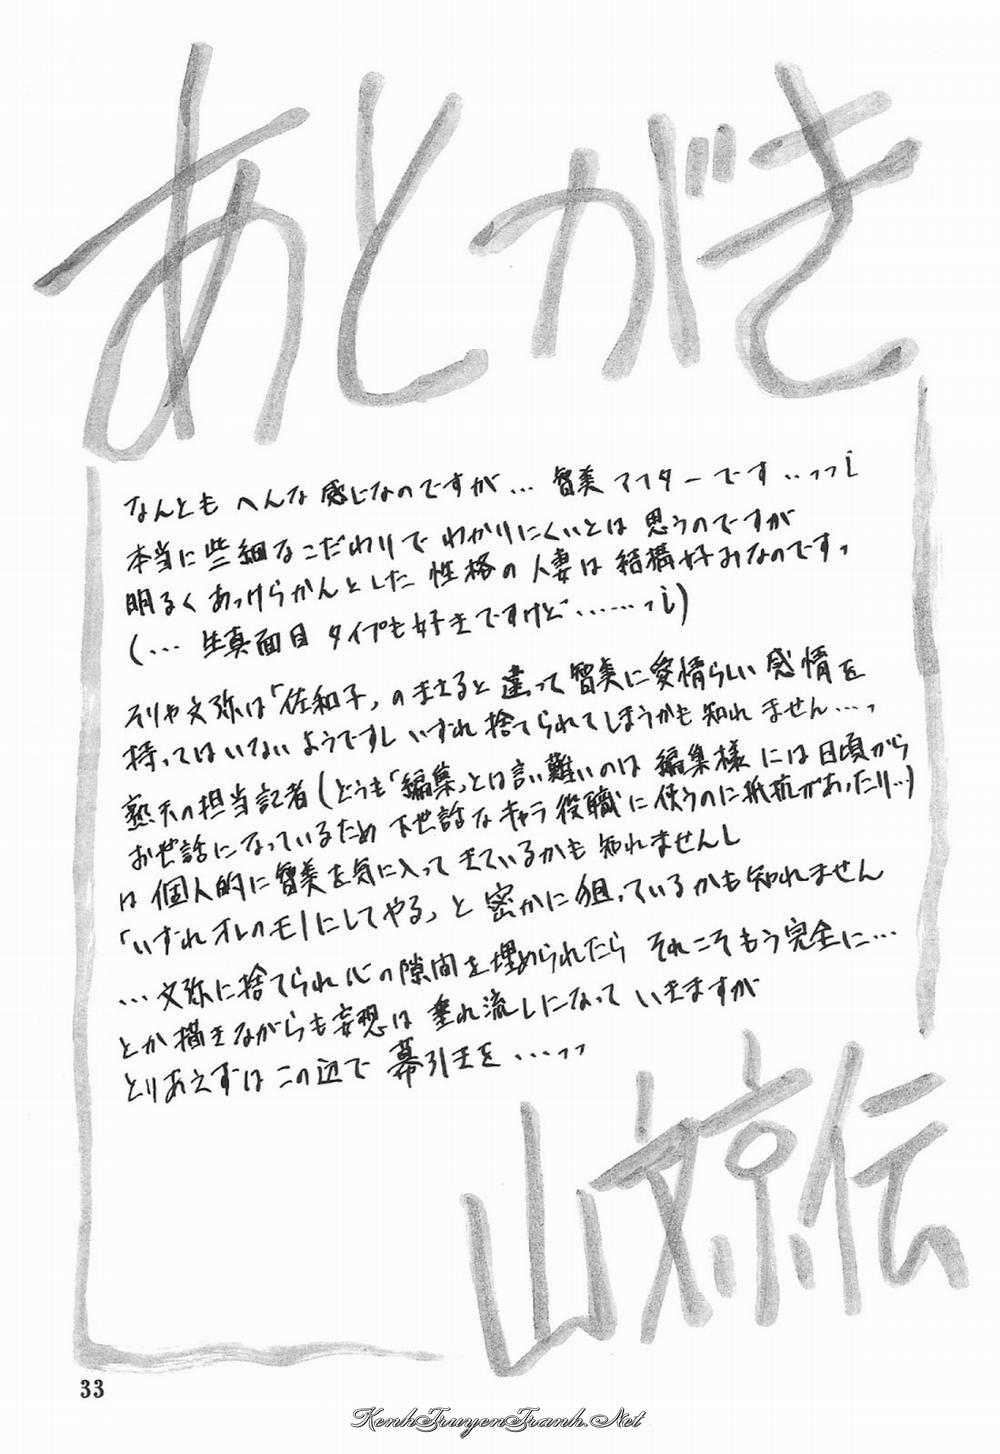 あとがき
なんとも へんな 感じなのですが… 智美 アフターです‥‥ッッi
本当に 些細な こだわりで わかりにくいとは 思うのですが
明るく あっけらかんとした 性格の 人妻は 結構好みなのです、
(… 生真面目 タイプも好きですけど……ッi)
そりゃ文弥は「佐和子」のまさると 違って 智美に愛情らしい 感情を
持ってはいない ようですし いずれ 捨てられてしまうかも 知れません…、
熟天の担当記者(どうも「編集」とは言い難いのは 編集様 には 日頃から
お世話になっているため 下世話な キャラ 役職に 使うのに抵抗があったり…)
は 個人的に 智美を気に入って きているかも 知れませんし
「いずれ オレのモノにしてやる」と 密かに狙っているかも知れません
… 文弥に捨てられ 心の隙間を埋められたら それこそ もう完全に…
とか 描きながらも妄想は 垂れ流しになって いきますが
とりあえずは この辺で 幕引きを …ッッ
山文京伝
33
KenhTruyenTranh.Net